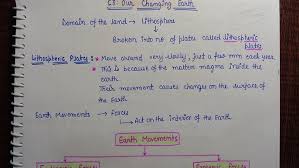 L3: Our Changing Earth
Domain of the land → Lithosphere
Broken into no. of plates called lithospheric plates
Lithospheric Plates : * Move around very slowly, Just a few mm each year.
* This is because of the molten magma inside the earth.
Their movement causes changes on the surface of the Earth.
Earth Movements → Forces
↳ Act on the interior of the Earth
Earth Movements
Endogenic Forces Exogenic Forces